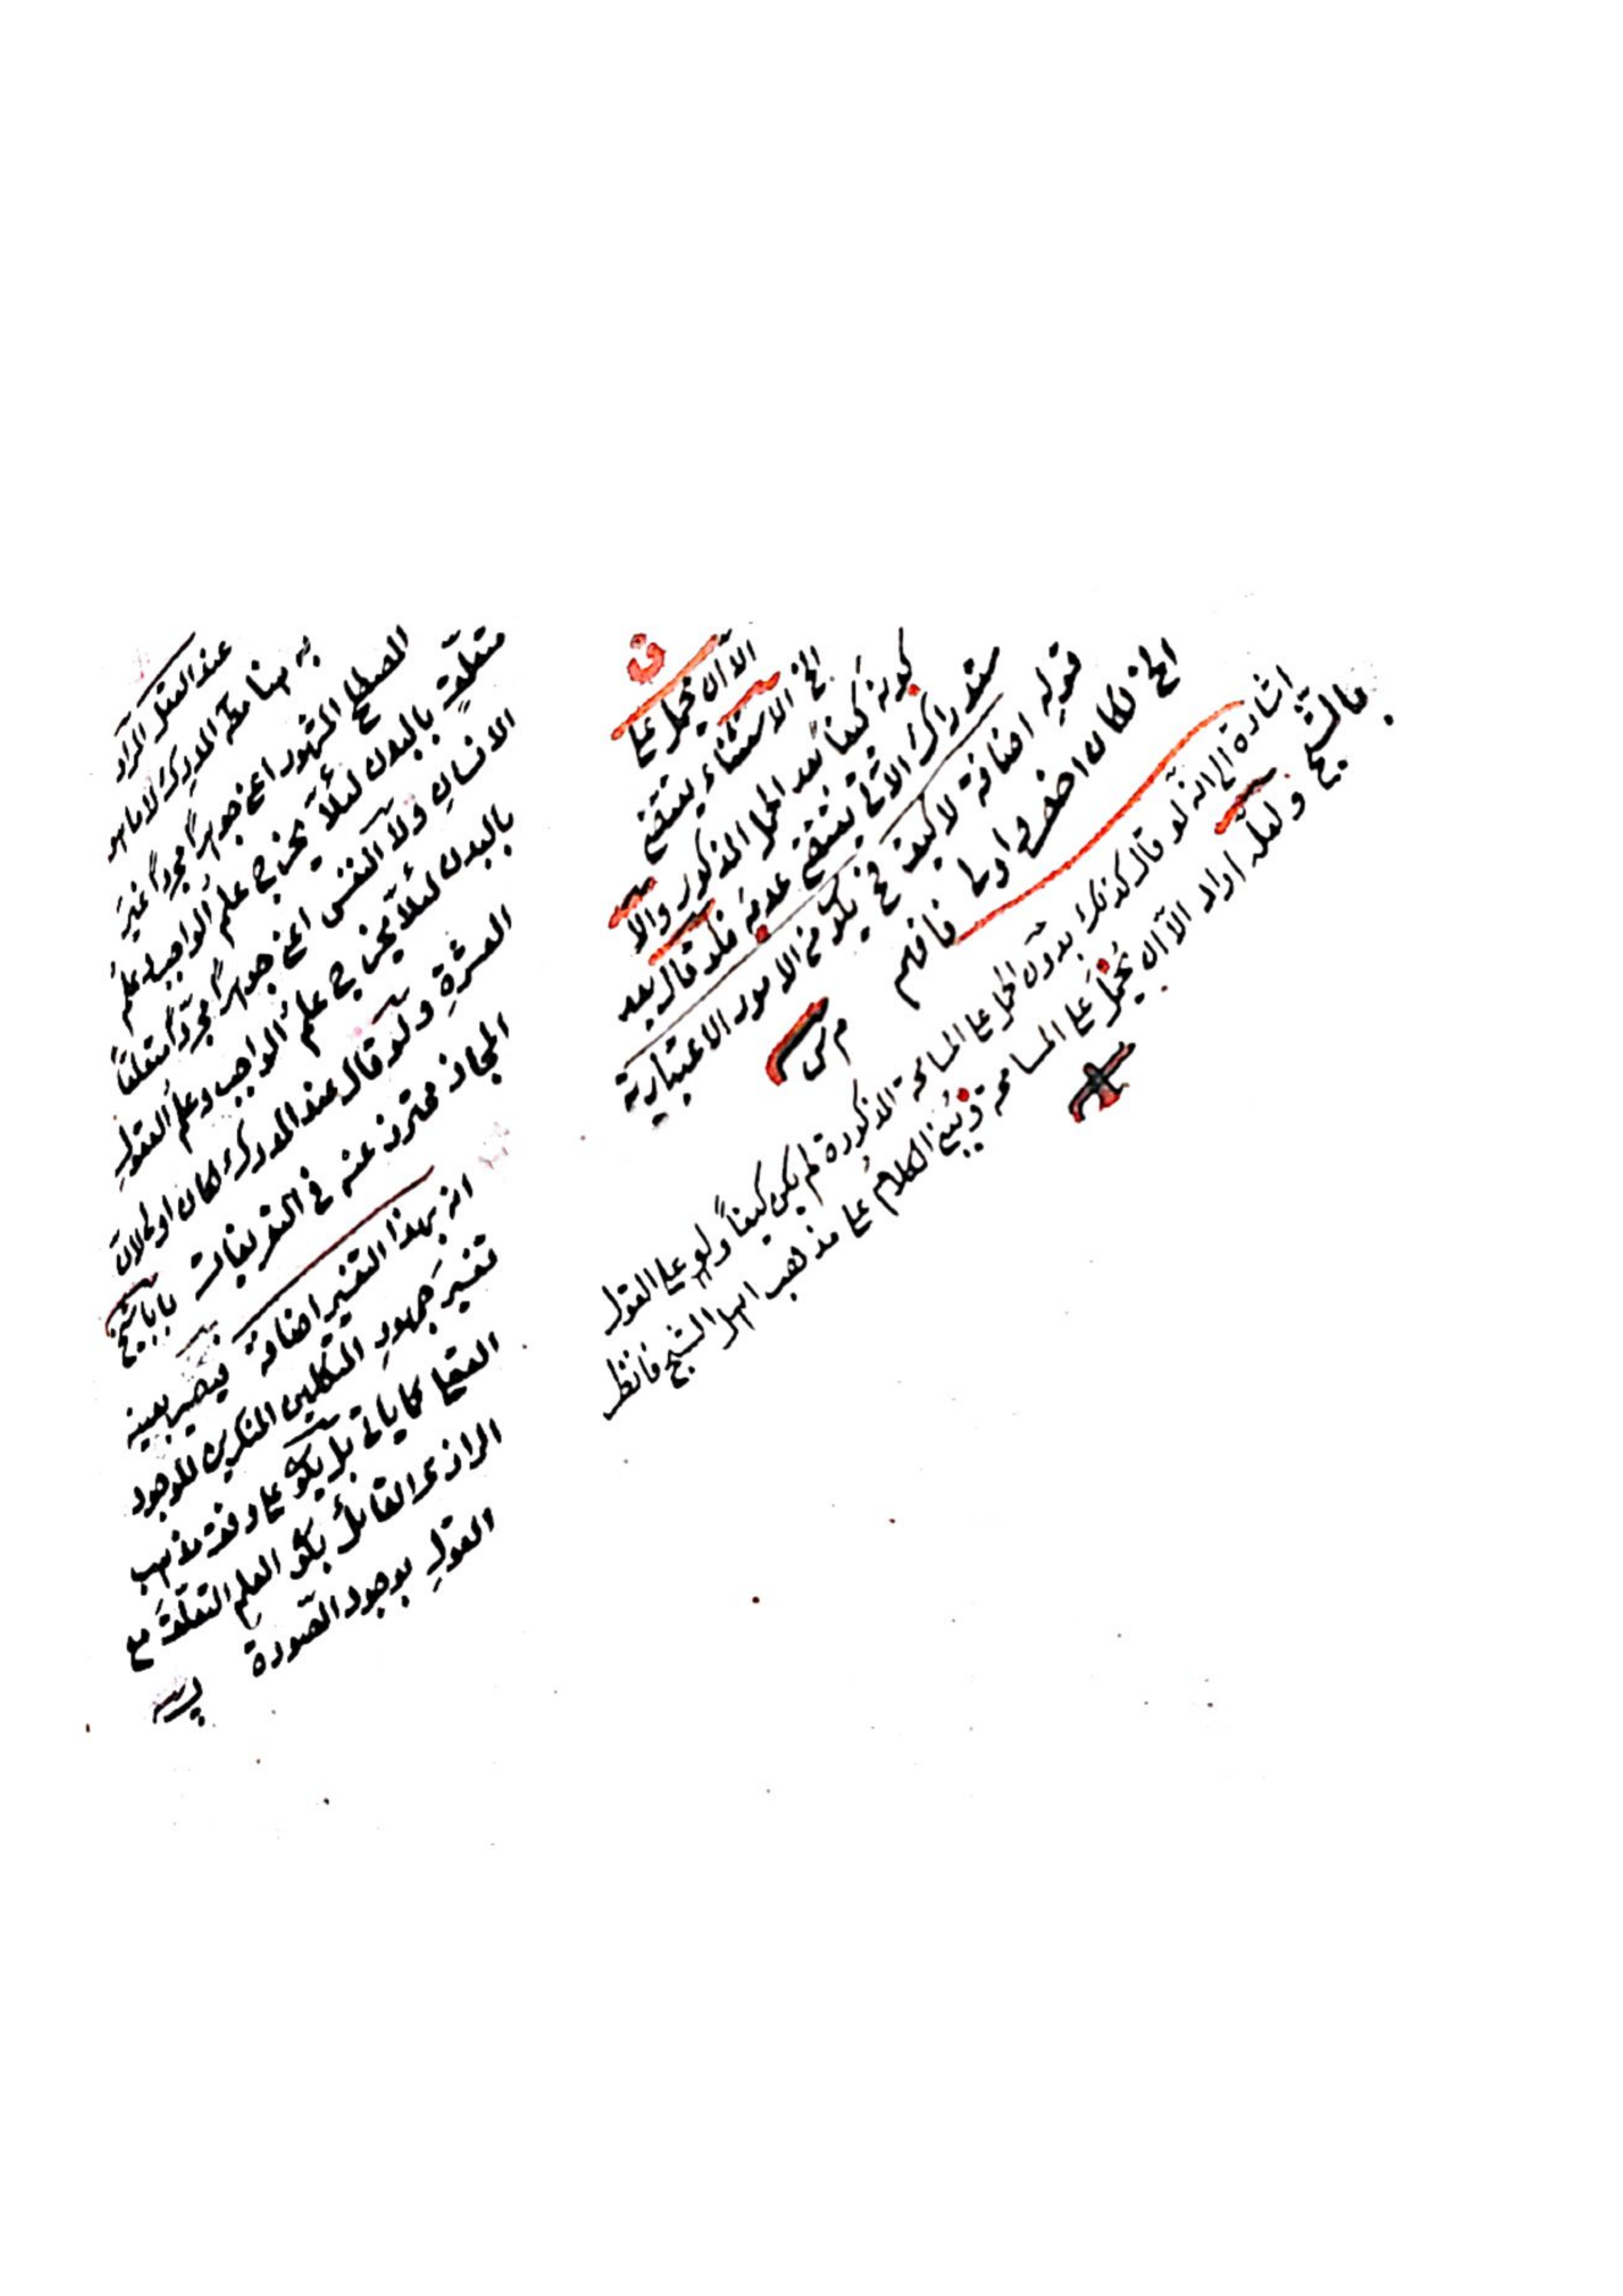 الا ان يحمل على
الخ الاستثناء يقتضي
كونه كيفا بعد الحمل المذكور والا
ستدراك الآتي يقتضي عدمه فلو قال بعد
قوله اضافة لا كيف فح يكون من الامور الاعتبارية
الخ لكان اخصر واولى فافهم
اشارة الى انه لو قال كذلك بدون الحمل على المسامحة المذكورة لم يكن كيفاً ولو على القول
بالشبح ولعله اراد الا ان يُحمَل على المسامحة ويُبنى الكلامُ على مذهب اهل الشبح فانظر
عند العقل المراد
به هنا مطلق المدرِك لا ما هو
المصطلح المشهور اعني جوهراً مجرداً غيرَ
متعلق بالبدن لئلّا يخرج علم الواجب وعلمُ
الانسانِ ولا النفس اعني جوهراً مجرّداً متعلقاً
بالبدن لئلّا يخرج علمُ الواجب وعلمُ العقولِ
العشرةِ ولو قال عند المدرك لكان اولى لانّ
المجاز محترز عنه في التعريفات
انه بهذا التفسير اضافة فيصير بعينه
تفسيرَ جمهورِ المتكلمين المنكرين للوجود
العقلي كما يأتي بل يكون على وفق مذهب
الرازي القائل بكون العلم التعلّقَ مع
القولِ بوجود الصورة